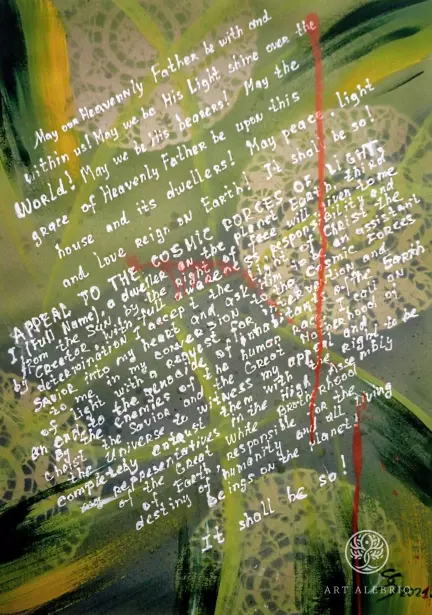 May our Heavennly Father be with and
within us! May we be His Light shine over the
World! May we be His bearers! May the
grace of Heavenly Father be upon this
house and its dwellers! May peace, light
and Love reign on Earth! It shall be so!
APPEAL TO THE COSMIC FORCES OF LIGHT
I, (Full Name), a dweller on the planet Earth, third
from the Sun, by the right of Free will given to me
by Creator, with full awareness, responsibility and
determination I accept the Light of Christ the
Savior into my heart and asking to be an assistant
to me in my conversion to the Cosmic Forces
of Light with a request for intervention and
an end to the genocide of inhabitants of the Earth
by the enemies of the human race. I call on
Christ the Savior and the Great
the Universe to witness my appeal and
completely entrust them with the right to be
representatives in the High Assembly
of the Great White Brotherhood
of Earth, responsible for the
destiny of humanity and all living
beings on the Planet!
It shall be so!
ART ALEBRIO
2021